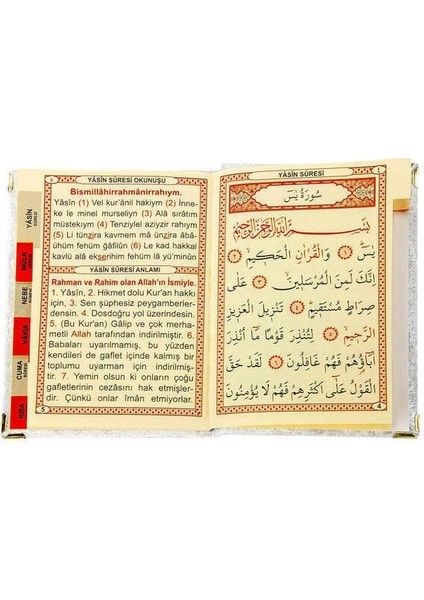 YÂSÎN SÛRESİ OKUNUŞU
Bismillâhirrahmânirrahıym.
Yâsîn (1) Vel kur'ânil hakiym (2) İnne-
ke le minel murseliyn (3) Alâ sırâtım
müstekıym (4) Tenziylel aziyzir rahıym
(5) Li tünzira kavmem mâ ünzira âbâ-
ühüm fehüm ğâfilûn (6) Le kad hakkal
kavlü alâ ekserihim fehüm lâ yü'minûn
YÂSÎN SÛRESİ ANLAMI
Rahman ve Rahim olan Allah'ın İsmiyle.
1. Yâsîn, 2. Hikmet dolu Kur'an hakkı
için, 3. Sen şüphesiz peygamberler-
densin. 4. Dosdoğru yol üzerindesin.
5. (Bu Kur'an) Gâlip ve çok merha-
metli Allah tarafından indirilmiştir. 6.
Babaları uyarılmamış, bu yüzden
kendileri de gaflet içinde kalmış bir
toplumu uyarman için indirilmiş-
tir. 7. Yemin olsun ki onların çoğu
gafletlerinin cezâsını hak etmişler-
dir. Çünkü onlar îman etmiyorlar.
5
YÂSÎN
MÜLK
NEBE
VÂKIA
CUMA
KISA
YÂSÎN SÛRESİ
سُورَةُ يٰسٓ
بِسْمِ اللّٰهِ الرَّحْمٰنِ الرَّحِيمِ
يٰسٓ ﴿١﴾ وَالْقُرْاٰنِ الْحَكِيمِ ﴿٢﴾
اِنَّكَ لَمِنَ الْمُرْسَلِينَ ﴿٣﴾ عَلٰى
صِرَاطٍ مُسْتَقِيمٍ ﴿٤﴾ تَنْزِيلَ الْعَزِيزِ
الرَّحِيمِ ﴿٥﴾ لِتُنْذِرَ قَوْمًا مَٓا اُنْذِرَ
اٰبَٓاؤُهُمْ فَهُمْ غَافِلُونَ ﴿٦﴾ لَقَدْ حَقَّ
الْقَوْلُ عَلٰٓى اَكْثَرِهِمْ فَهُمْ لَا يُؤْمِنُونَ
4